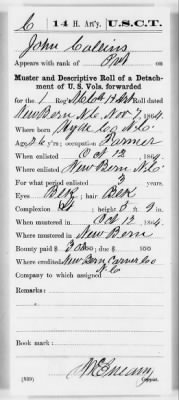 C | 14 H. Art'y. | U.S.C.T.
John Collins
Appears with rank of Pvt on
Muster and Descriptive Roll of a Detach-
ment of U. S. Vols. forwarded
for the 1 Reg't N.C. Col. H. Art. Roll dated
New Bern N.C. Nov 7, 1864.
Where born Hyde Co N.C.
Age, 26 y'rs; occupation Farmer
When enlisted Oct 12, 1864.
Where enlisted New Bern N.C.
For what period enlisted 3 years.
Eyes Blk; hair Blk
Complexion; height 5 ft. 9 in.
When mustered in Oct 12, 1864.
Where mustered in New Bern
Bounty paid $ 100; due $ 100
Where credited New Bern Craven Co
N.C.
Company to which assigned
Remarks:
Book mark:
(339)
Copyist.